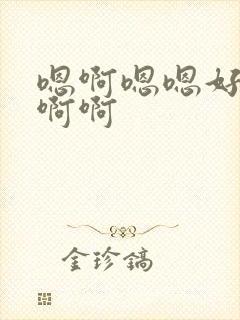 嗯啊嗯嗯好
啊啊
金珍镐